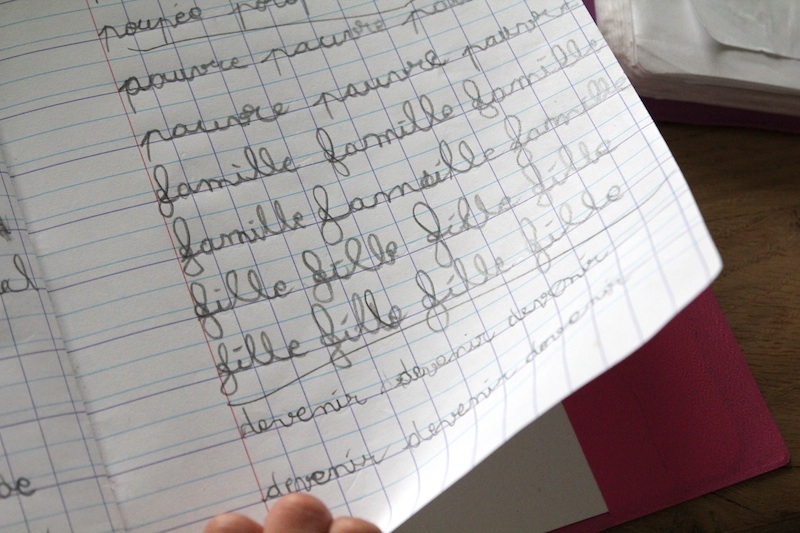 poupée
pauvre pauvre
pauvre pauvre pauvre
famille famille famille
famille famille famille
fille fille fille fille
fille fille fille fille
devenir devenir devenir
devenir devenir devenir